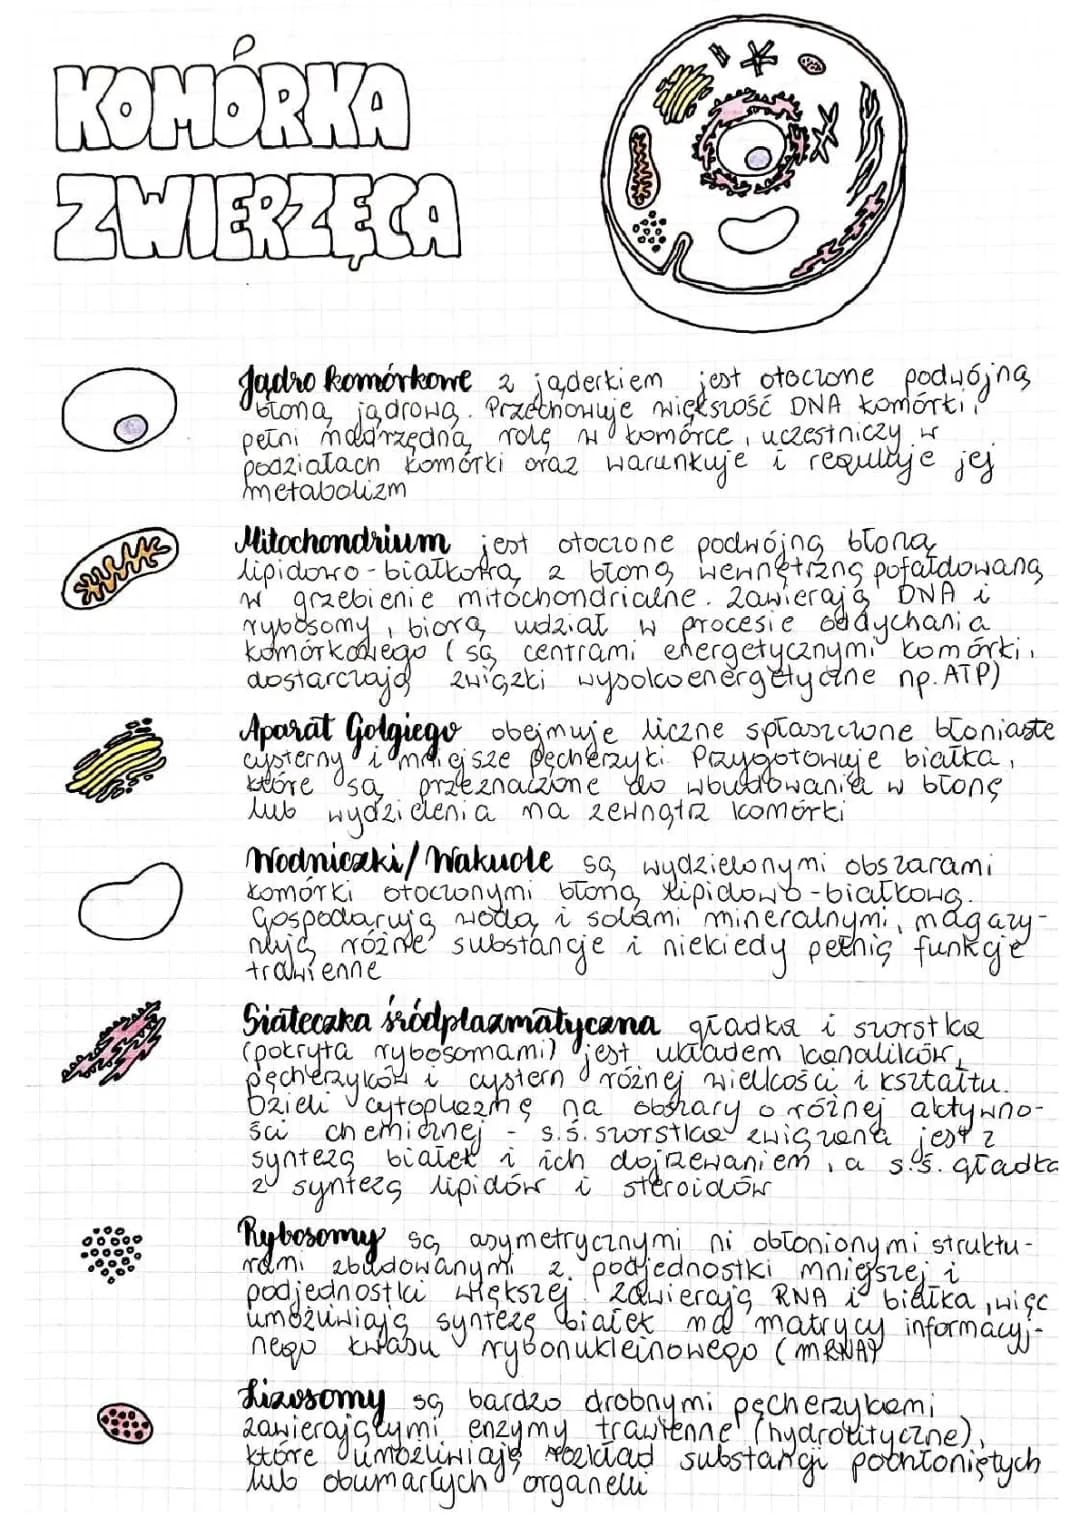 KOMÓRKA
ZWIERZĘCA
Jądro komórkowe z jąderkiem jest otoczone podwójną
błoną jądrową. Przechowuje większość DNA komórki,
pełni nadrzędną rolę w komórce, uczestniczy w
podziałach komórki oraz warunkuje i reguluje jej
metabolizm
Mitochondrium jest otoczone podwójną błoną
lipidowo-białkową z błoną wewnętrzną pofałdowaną
w grzebienie mitochondrialne. Zawierają DNA i
rybosomy, biorą udział w procesie oddychania
komórkowego (są centrami energetycznymi komórki,
dostarczają związki wysokoenergetyczne np. ATP)
Aparat Golgiego obejmuje liczne spłaszczone błoniaste
cysterny i mniejsze pęcherzyki. Przygotowuje białka,
które są przeznaczone do wbudowania w błonę
lub wydzielenia na zewnątrz komórki
Wodniczki/Wakuole są wydzielonymi obszarami
komórki otoczonymi błoną lipidowo-białkową.
Gospodarują wodą i solami mineralnymi, magazy-
nują różne substancje i niekiedy pełnią funkcje
trawienne
Siateczka śródplazmatyczna gładka i szorstka
(pokryta rybosomami) jest układem kanalików,
pęcherzyków i cystern różnej wielkości i kształtu.
Dzieli cytoplazmę na obszary o różnej aktywno-
ści chemicznej - s.ś. szorstka związana jest z
syntezą białek i ich dojrzewaniem, a s.ś. gładka
z syntezą lipidów i steroidów
Rybosomy są asymetrycznymi ni obłonionymi struktu-
rami zbudowanymi z podjednostki mniejszej i
podjednostki większej. Zawierają RNA i białka, więc
umożliwiają syntezę białek na matrycy informacyj-
nego kwasu rybonukleinowego (mRNA)
Lizosomy są bardzo drobnymi pęcherzykami
zawierającymi enzymy trawienne (hydrolityczne),
które umożliwiają rozkład substancji pochłoniętych
lub obumarłych organelli